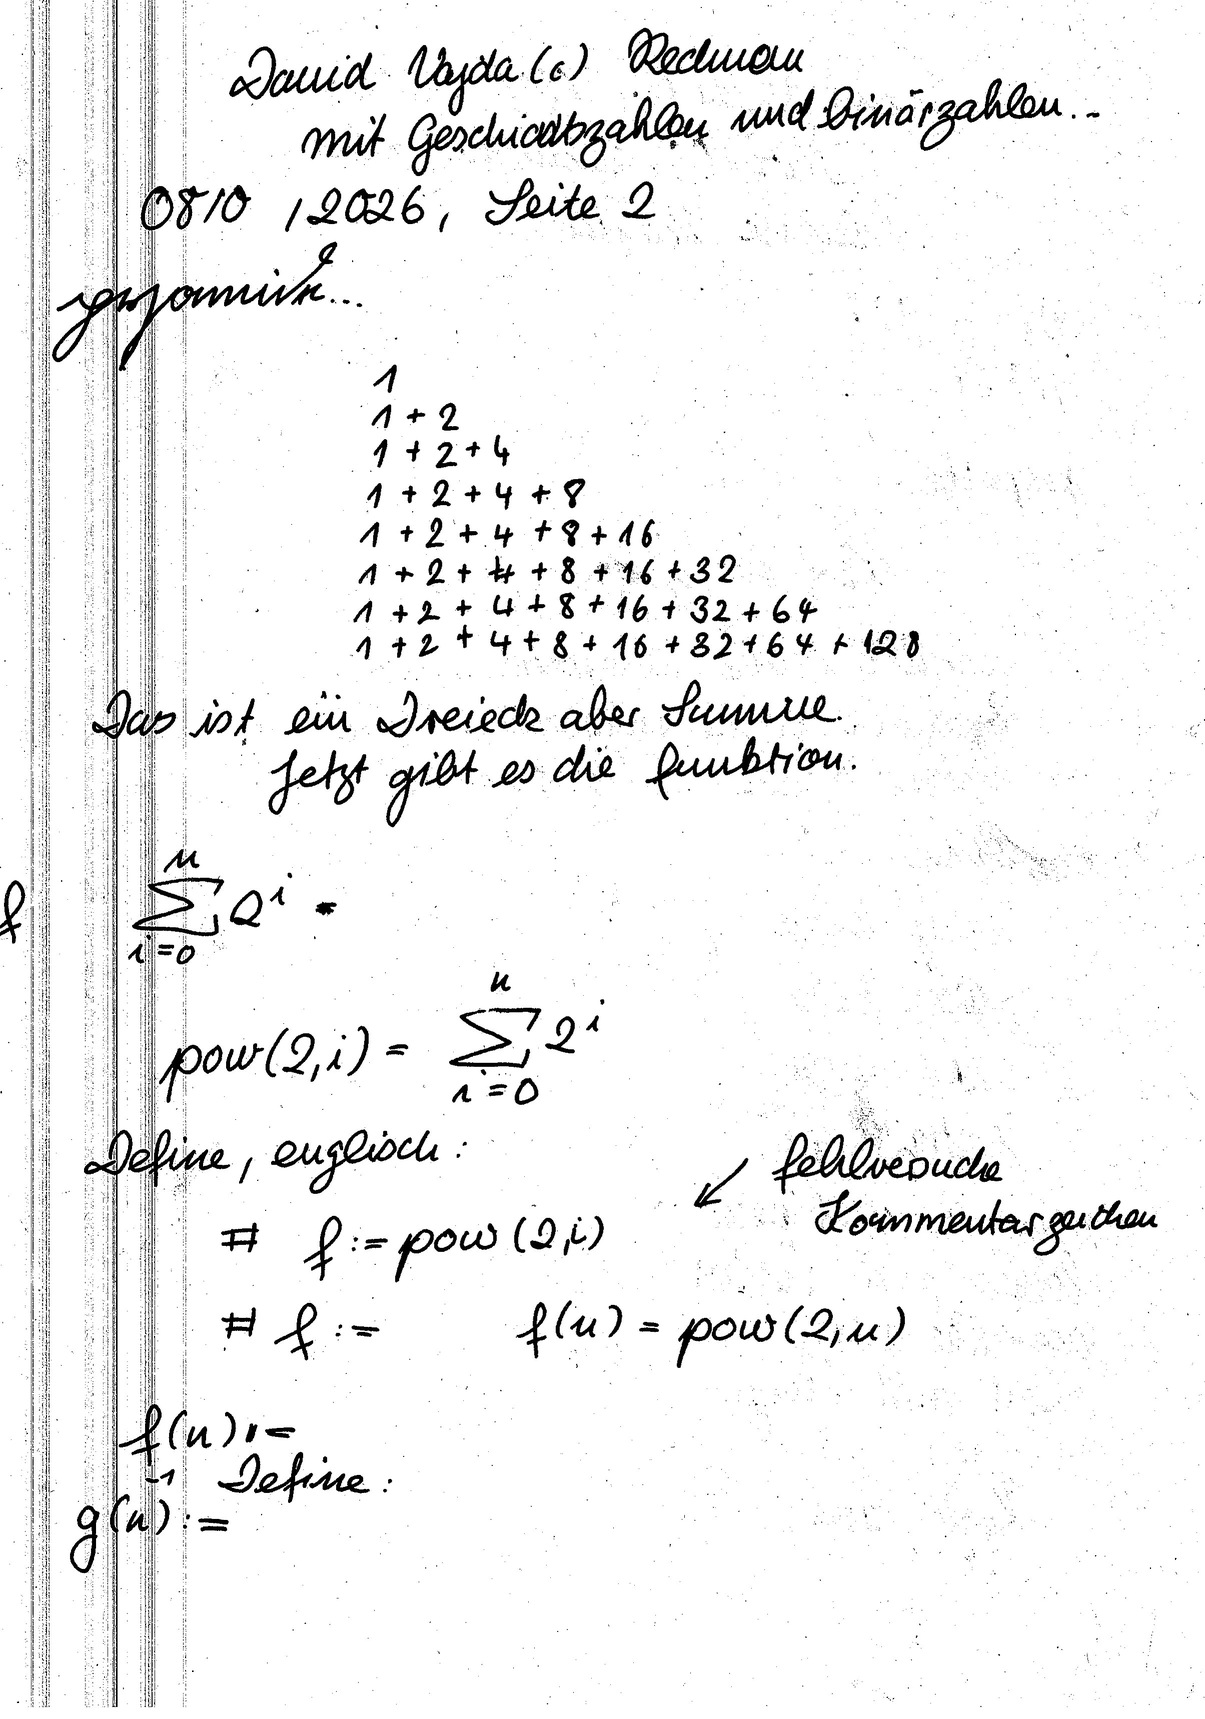 David Vajda (c) Rechnen
mit Geschichtszahlen und binärzahlen...
08/10 , 2026, Seite 2
1
1 + 2
1 + 2 + 4
1 + 2 + 4 + 8
1 + 2 + 4 + 8 + 16
1 + 2 + 4 + 8 + 16 + 32
1 + 2 + 4 + 8 + 16 + 32 + 64
1 + 2 + 4 + 8 + 16 + 32 + 64 + 128
Das ist ein Dreieck aber Summe.
Jetzt gibt es die funktion.
n
f ∑ 2^i =
i=0
n
pow(2,i) = ∑ 2^i
i=0
Define, englisch:
fehlversuche
Kommentarzeichen
# f := pow (2,i)
# f := f(n) = pow(2,n)
f(n) :=
-1 Define:
g(n) :=